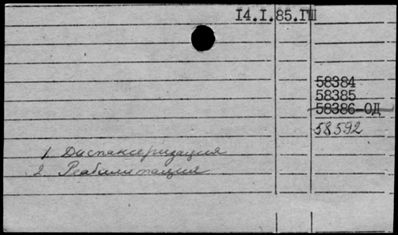 14.I.85.ГШ
58384
58385
58386-ОД
58592
1. Диспансеризация
2. Реабилитация